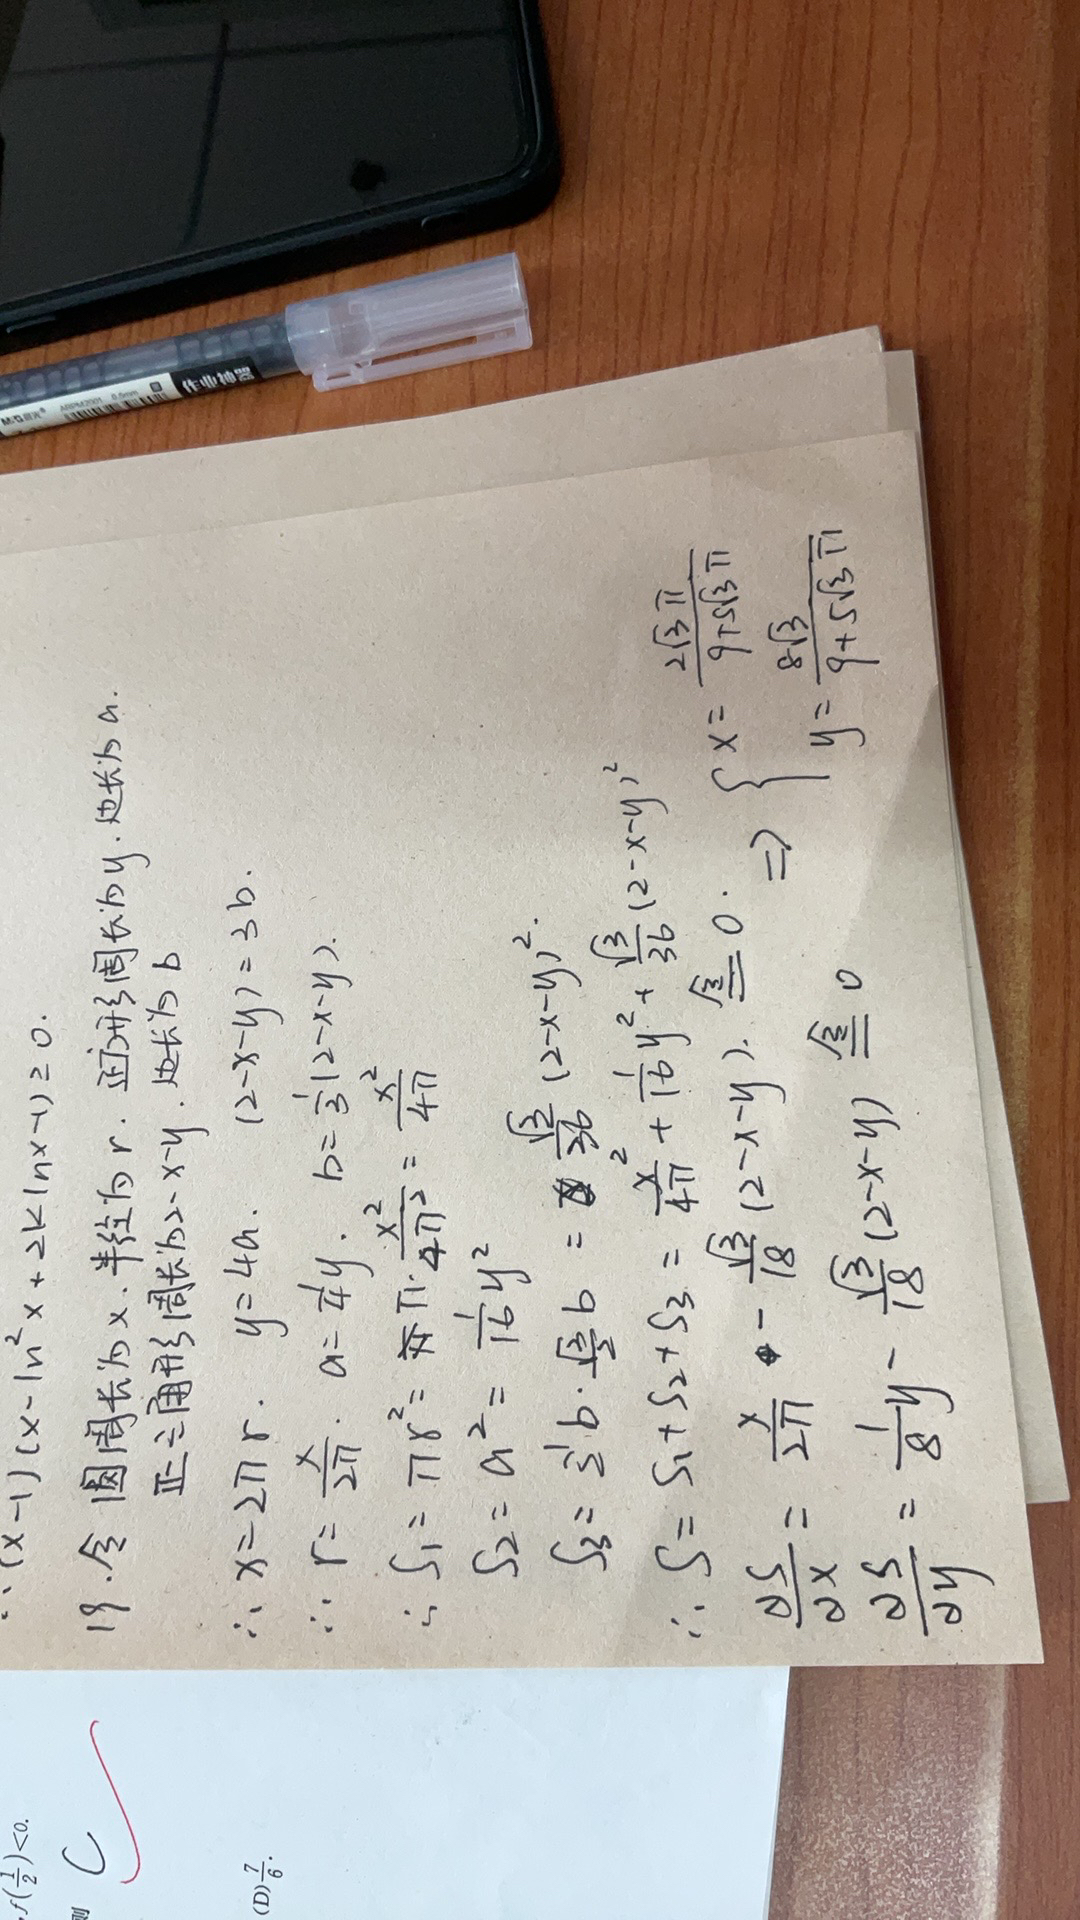 ∴(x-1)(x-ln²x+2klnx-1)≥0.
19.令圆周长为x.半径为r.正方形周长为y.边长为a.
正三角形周长为2-x-y.边长为b
∴x=2πr. y=4a. (2-x-y)=3b.
∴r=x/2π. a=1/4y. b=1/3(2-x-y).
∴S₁=πr²=π·x²/4π²=x²/4π
S₂=a²=1/16y²
S₃=1/2b·√3/2b=√3/36(2-x-y)².
∴S=S₁+S₂+S₃=x²/4π+1/16y²+√3/36(2-x-y)²
∂S/∂x=x/2π-√3/18(2-x-y).令=0.
∂S/∂y=1/8y-√3/18(2-x-y)令=0
⇒{x=2√3π/9+5√3π
y=8√3/9+5√3π
M&G晨光®
ARPM2001 0.5mm
作业神器
,f(1/2)<0.
则
C
(D)7/6.